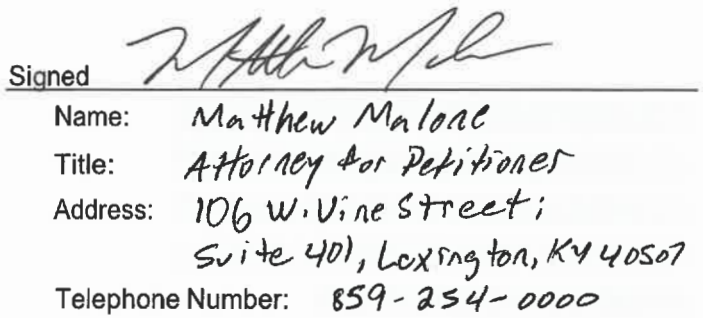 Signed
Name: Matthew Malone
Title: Attorney for Petitioner
Address: 106 W. Vine Street;
Suite 401, Lexington, KY 40507
Telephone Number: 859-254-0000